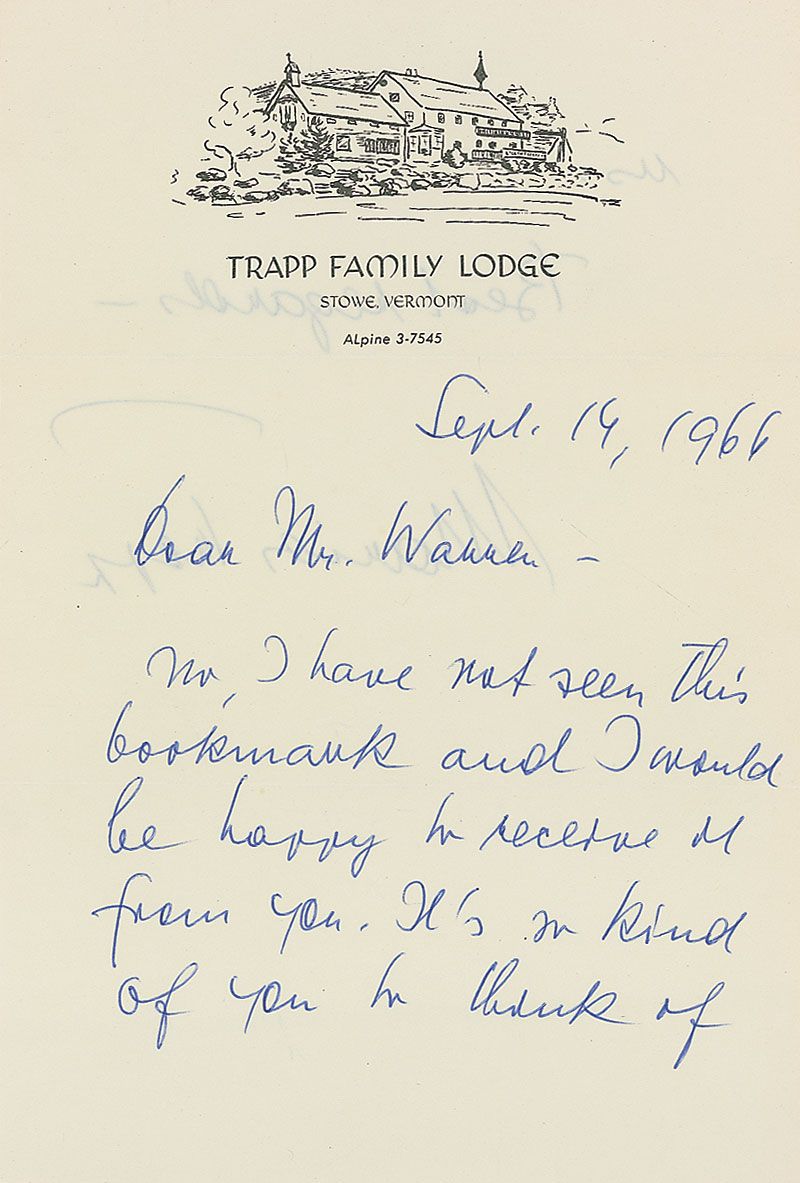 TRAPP FAMILY LODGE
STOWE, VERMONT
ALpine 3-7545
Sept. 14, 1966
Dear Mr. Warren –
No, I have not seen this
bookmark and I would
be happy to receive it
from you. It's so kind
of you to think of